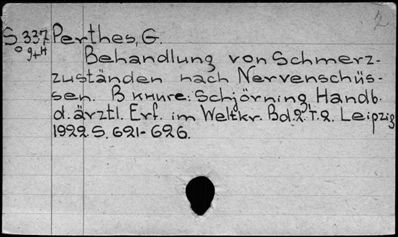 2
S 337 Perthes, G.
0 9+H
Behandlung von Schmerz-
zuständen nach Nervenschüs-
sen. В книге: Schjörning, Handb.
d. ärztl. Erf. im Weltkr. Bd.2. T.2. Leipzig
1922 S. 621-626.